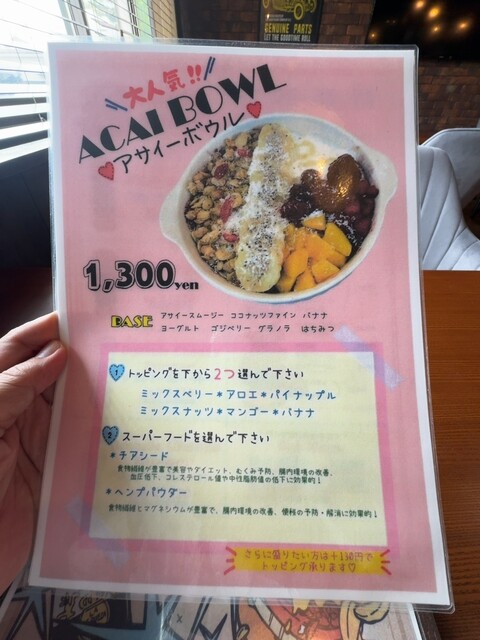 GENUINE PARTS
LET THE GOODTIME ROLL
大人気!!
ACAI BOWL
アサイーボウル
1,300yen
BASE
アサイースムージー ココナッツファイン バナナ
ヨーグルト ゴジベリー グラノラ はちみつ
1 トッピングを下から2つ選んで下さい
ミックスベリー*アロエ*パイナップル
ミックスナッツ*マンゴー*バナナ
2 スーパーフードを選んで下さい
*チアシード
食物繊維が豊富で美容やダイエット、むくみ予防、腸内環境の改善、
血圧低下、コレステロール値や中性脂肪値の低下に効果的!
*ヘンプパウダー
食物繊維とマグネシウムが豊富で、腸内環境の改善、便秘の予防・解消に効果的!
さらに盛りたい方は+110円で
トッピング承ります♡